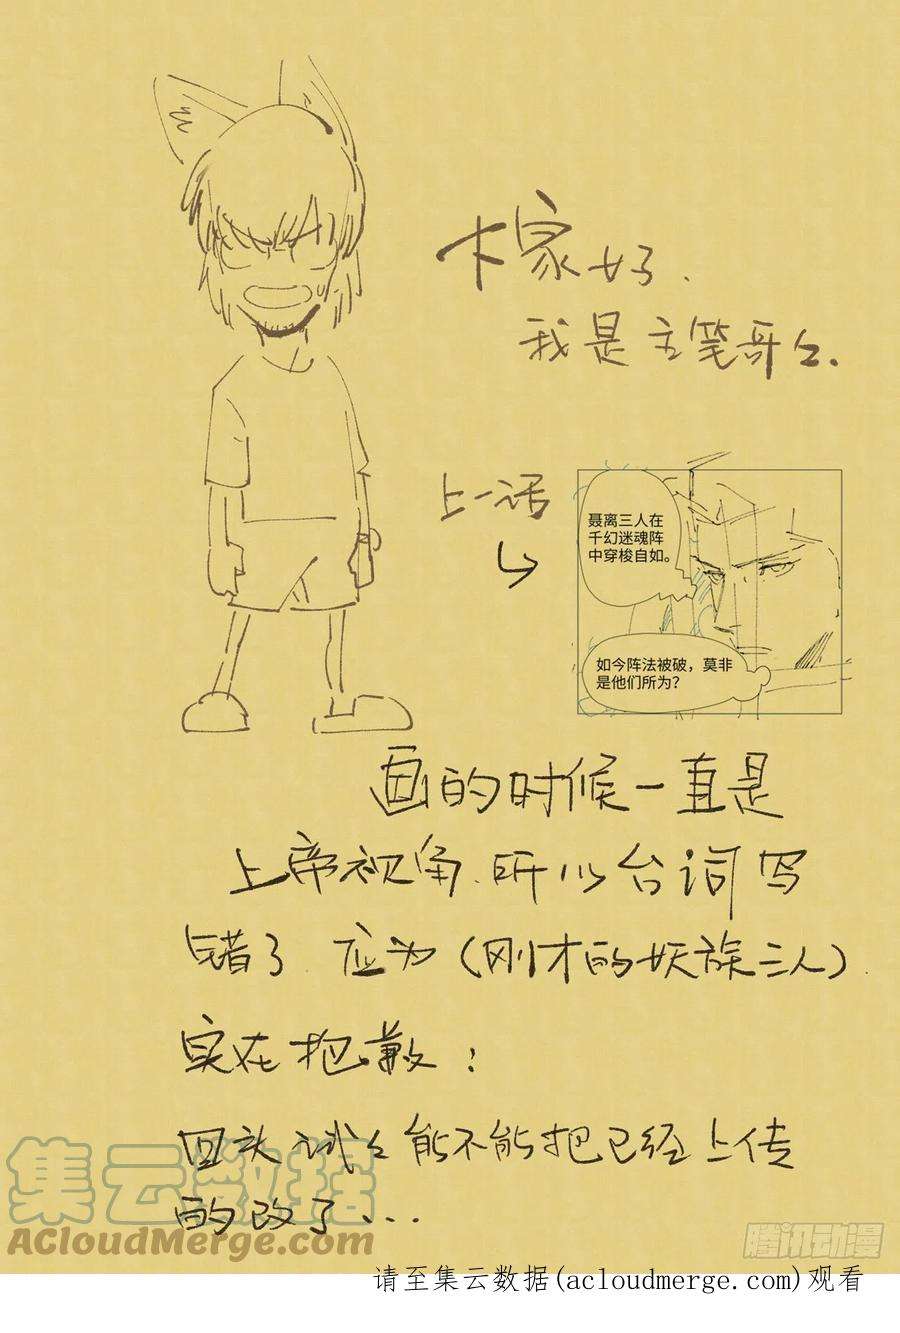 大家好、
我是主笔哥々.
上一话
聂离三人在
千幻迷魂阵
中穿梭自如。
如今阵法被破，莫非
是他们所为？
画的时候一直是
上帝视角.所以台词写
错了 应为（刚才的妖族三人）.
实在抱歉；
回头试々能不能把已经上传
的改了、...
集云数据
ACloudMerge.com
腾讯动漫
请至集云数据(acloudmerge.com)观看